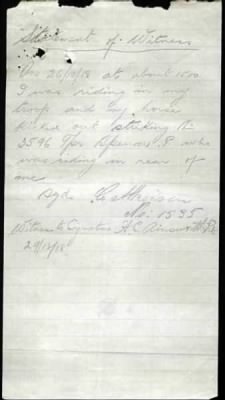 Statement of Witness
On 25/12/18 at about 1500
I was riding in my
troop and my horse
kicked out striking
3596 Tpr Spencer P who
was riding in rear of
me
Sgd
No. 1535
Witness to Signature H.C.
29/12/18